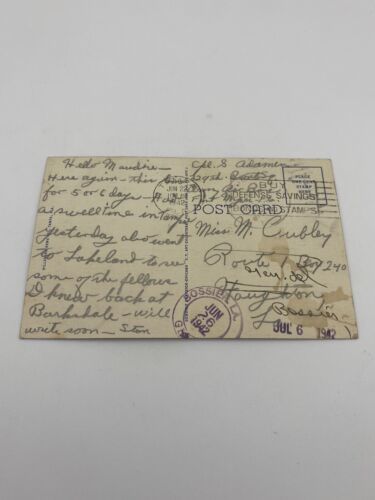 Hello Maudine –
Here again – this time
for 5 or 6 days – Had
a swell time in Tampa
yesterday also went
to Lakeland to see
some of the fellows
I knew back at
Barksdale – will
write soon – Stan
Cpl. S. Adamen
JUN 22
BUY
DEFENSE SAVINGS
STAMPS
PLACE
STAMP
HERE
POST CARD
Miss M. Cubley
Route 1 Box 240
Haughton
Bossier
La
BOSSIER, LA.
JUN
26
1942
JUL 6 1942